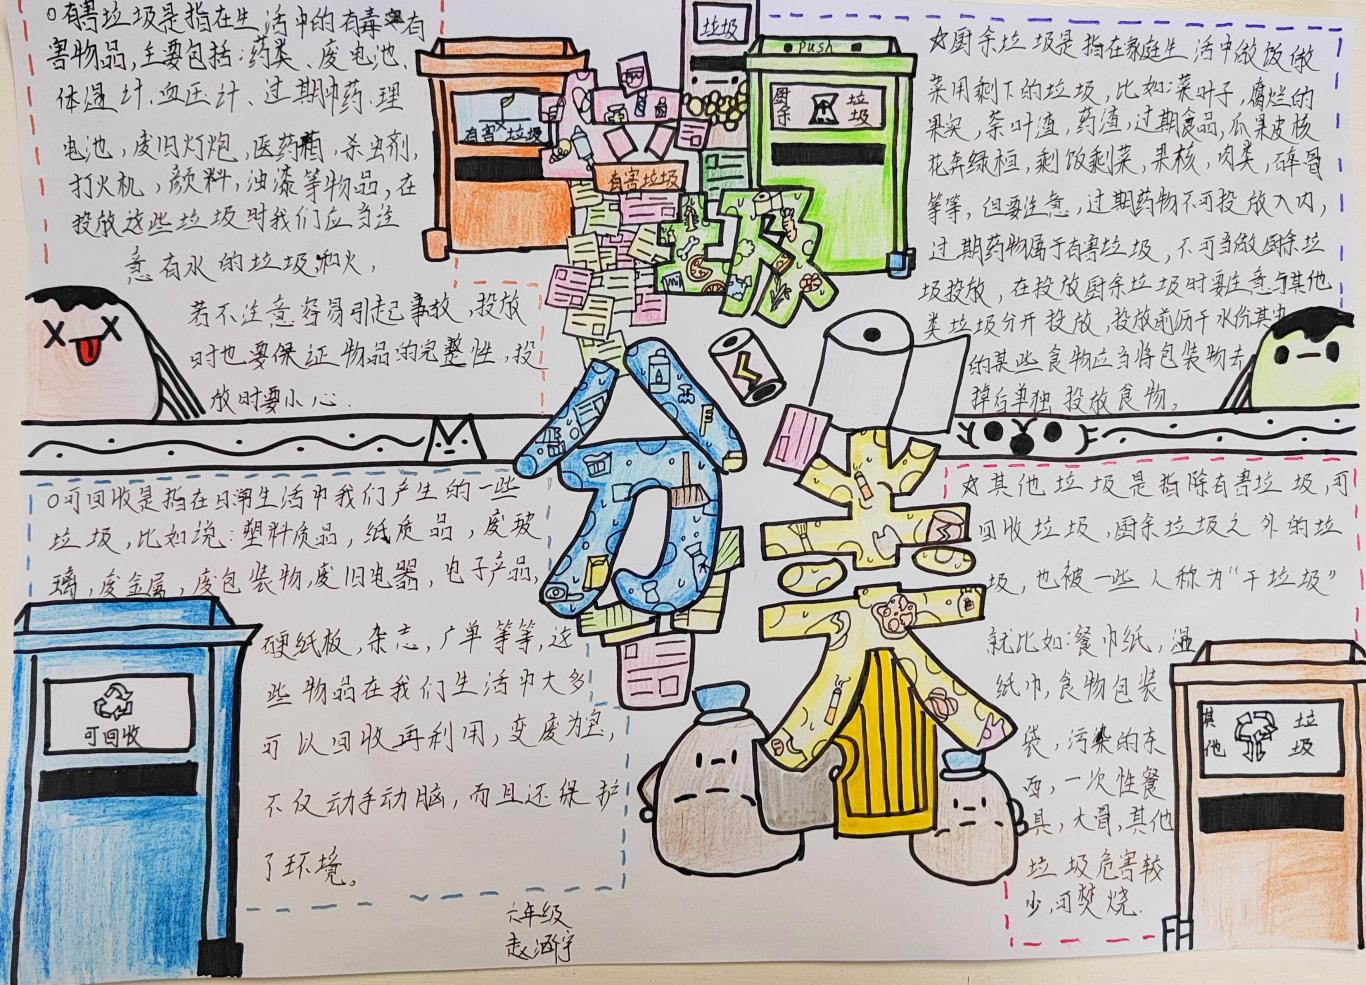 有害垃圾是指在生活中的有毒有
害物品,主要包括:药类、废电池、
体温计、血压计、过期药、理
电池,废旧灯炮,医药箱,杀虫剂,
打火机,颜料,油漆等物品,在
投放这些垃圾时我们应当注
意有水的垃圾和火,
若不注意容易引起事故,投放
时也要保证物品的完整性,投
放时要小心.
有害垃圾
有害垃圾
垃圾
push
厨余垃圾
垃圾分类
☆厨余垃圾是指在家庭生活中做饭做
菜用剩下的垃圾,比如:菜叶子,腐烂的
果实,茶叶渣,药渣,过期食品,瓜果皮核
花卉绿桓,剩饭剩菜,果核,肉类,碎骨
等等,但要注意,过期药物不可投放入内,
过期药物属于有害垃圾,不可当做厨余垃
圾投放,在投放厨余垃圾时要注意与其他
类垃圾分开投放,投放前沥干水份其中
的某些食物应当将包装物去
掉后单独投放食物。
可回收是指在日常生活中我们产生的一些
垃圾,比如说:塑料质品,纸质品,废玻
璃,废金属,废包装物,废旧电器,电子产品,
硬纸板,杂志,广单等等,这
些物品在我们生活中大多
可以回收再利用,变废为宝,
不仅动手动脑,而且还保护
了环境。
可回收
☆其他垃圾是指除有害垃圾,可
回收垃圾,厨余垃圾之外的垃
圾,也被一些人称为“干垃圾”
就比如:餐巾纸,湿
纸巾,食物包装
袋,污染的东
西,一次性餐
具,大骨,其他
垃圾危害较
少,可焚烧.
其他垃圾
六年级
赵涵宇